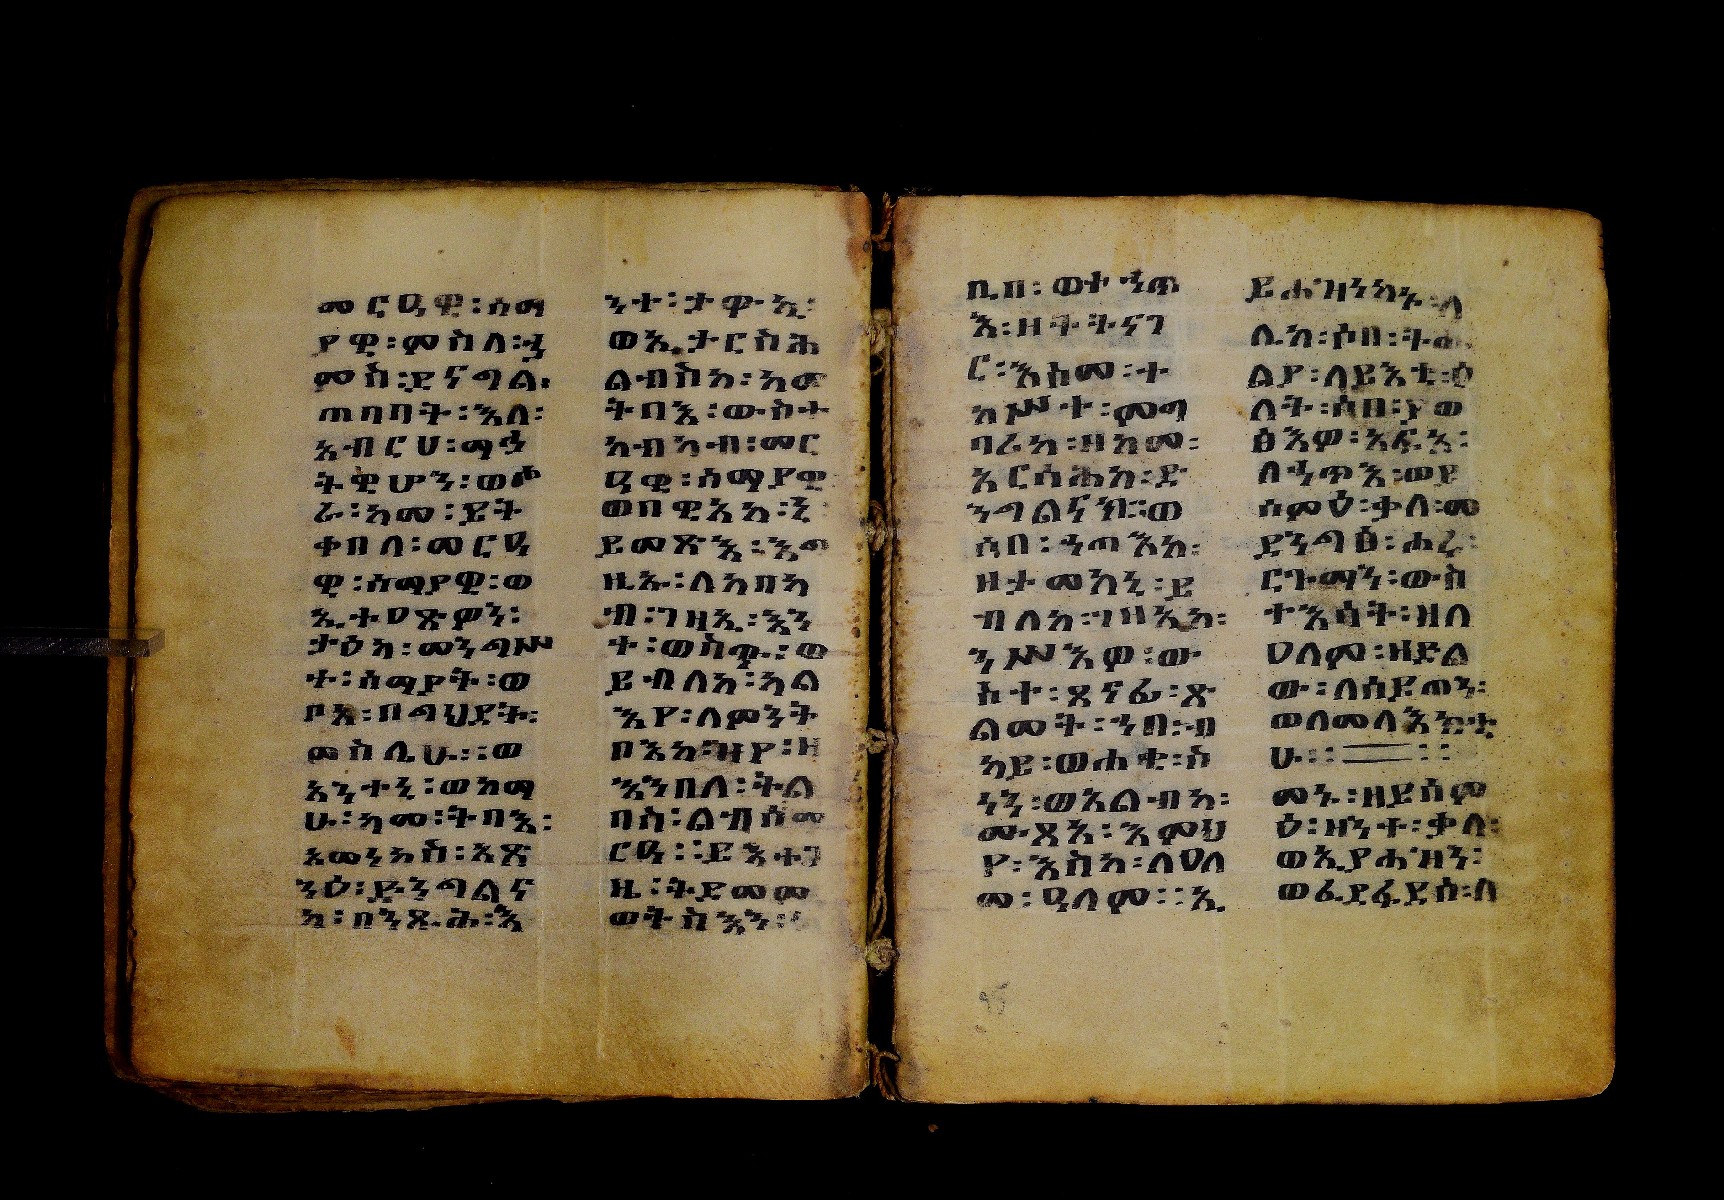 መርዓዊ፡ሰማ
ያዊ፡ምስለ፡፭
መስ፡ደናግል፡
ጠባባት፡እለ፡
አብርሀ፡ማኅ
ትዊሆን፡ወሖ
ራ፡አመ፡ይት
ቀበለ፡መርዓ
ዊ፡ሰማያዊ፡ወ
ኢተዐጽዎን፡
ታዕካ፡መንግሥ
ተ፡ሰማያት፡ወ
ቦአ፡በግህደት፡
ምስሌሁ።ወ
አንተኒ፡ወከማ
ሁ፡ከመ፡ትባእ፡
እመነኮስ፡አጽ
ንዕ፡ድንግልና
ከ፡በንጽሕ፡እ
ንተ፡ታዋኢ፡
ወኢታርስሕ
ልብስከ፡ከመ
ትባእ፡ውስተ
ከብካብ፡መር
ዓዊ፡ሰማያዊ
ወበዊአከ፡ኒ
ይመጽእ፡እግ
ዚኡ፡ለከብካ
ብ፡ገዛኢ፡እን
ተ፡ወስጡ፡ወ
ይብለከ፡ካል
እየ፡ለምንት
ቦእከ፡ዝየ፡ዘ
እንበለ፡ትል
በስ፡ልብሰ፡መ
ርዓ።ይእተጊ
ዜ፡ትደመመ
ወትስእን፡
ቢበ፡ወተኀጥ
እ፡ዘትትናገ
ር፡እስመ፡ተ
ከሥተ፡ምግ
ባሪከ፡ዘከመ፡
አርሳሕከ፡ድ
ንግልናከ።ወ
ሶበ፡ኀጣእከ፡
ዘታመክኒ፡ይ
ብለከ፡ገዛኢከ፡
ንሥእዎ፡ው
ስተ፡ጸናፊ፡ጽ
ልመት፡ኀበ፡ብ
ካይ፡ወሐቂየ፡ስ
ነን፡ወእልብከ፡
ሙጻአ፡እምህ
የ፡እስከ፡ለዐለ
መ፡ዓለም።ኢ
ይሐዝነከኑ፡ለ
ሊከ፡ሶበ፡ትሔ
ልያ፡ለይእቲ፡ዕ
ለት፡ሶበ፡ያወ
ፅእዎ፡አፍአ፡
ለኀጥእ፡ወይ
ሰምዕ፡ቃለ፡መ
ደንግፅ፡ሐሪ፡
ርጉማን፡ውስ
ተ፡እሳት፡ዘለ
ዐለም፡ዘድል
ው፡ለሰይጣን፡
ወለመላእክቲ
ሁ።==።
መኑ፡ዘይሰም
ዕ፡ዘንተ፡ቃለ፡
ወኢያሐዝን፡
ወፈደፋይሰ፡ለ